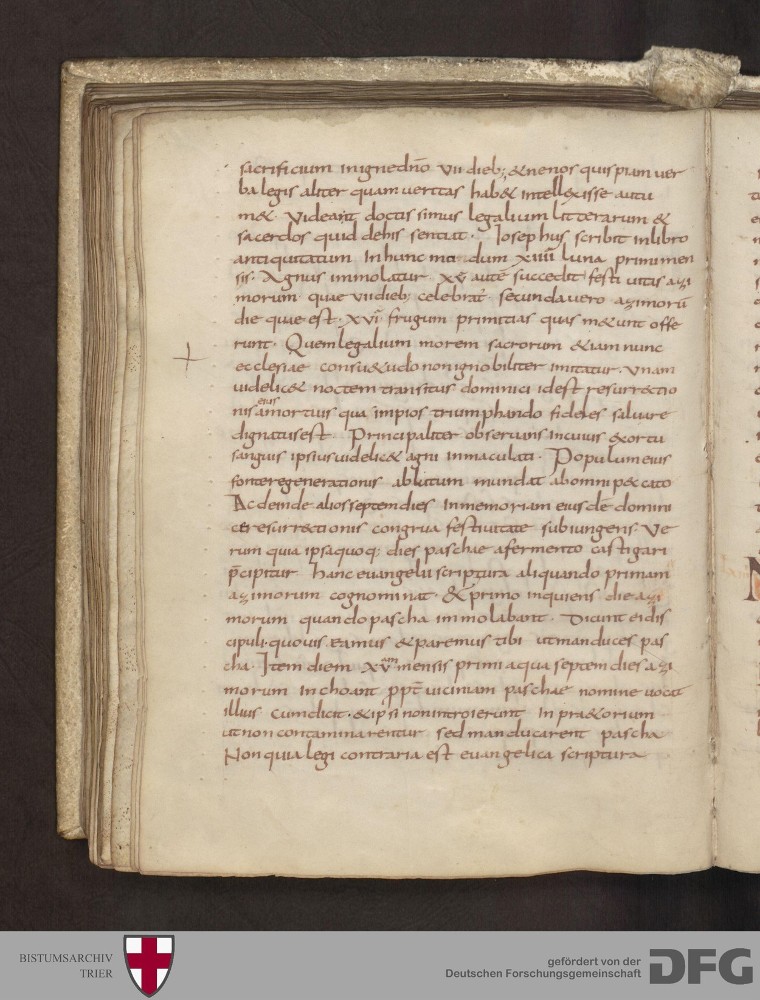 sacrificium in igne dño vii dieb; & ne nos quispiam uer
ba legis aliter quam ueritas hab& intellexisse autu
m&. Videant doctissimus legalium litterarum &
sacerdos quid dehis sentiat. Iosephus scribit inlibro
antiquitatum In hunc dum xiiii luna primi men
sis. Agnus immolatur xv autē succedit festiuitas azi
morum quae vii dieb; celebrat. secunda uero azimorū
die quae est. xvi. frugum primitias quas metunt offe
runt. Quem legalium morem sacrorum &iam nunc
ecclesiae consu&udo non ignobiliter imitatur. Vnam
uidelic& noctem transitus dominici idest resurrectio
nis eius amortuis qua impios triumphando fideles saluare
dignatus est Principaliter obseruans incuius exortu
sanguis ipsius uidelic& agni inmaculati. Populum eius
fonte regenerationis ablutum mundat abomni peccato
Ac deinde alios septem dies Inmemoriam eiusdē domini
cae resurrectionis congrua festiuitate subiungens. Ve
rum quia ipsa quoq; dies paschae afermento castigari
p̄cipitur hanc euangelii scriptura aliquando primam
azimorum cognominat. & primo inquiens die azi
morum quando pascha immolabant. Dicunt ei dis
cipuli. quo uis eamus & paremus tibi ut manduces pas
cha. Item diem xv mensis primi aqua septem dies azi
morum Inchoant. ppt̄ uiciniam paschae nomine uocat
illius cum dicit. & ipsi non introierunt In pr&orium
ut non contaminarentur sed manducarent pascha
Non quia legi contraria est euangelica scriptura
BISTUMSARCHIV
TRIER
gefördert von der
Deutschen Forschungsgemeinschaft
DFG